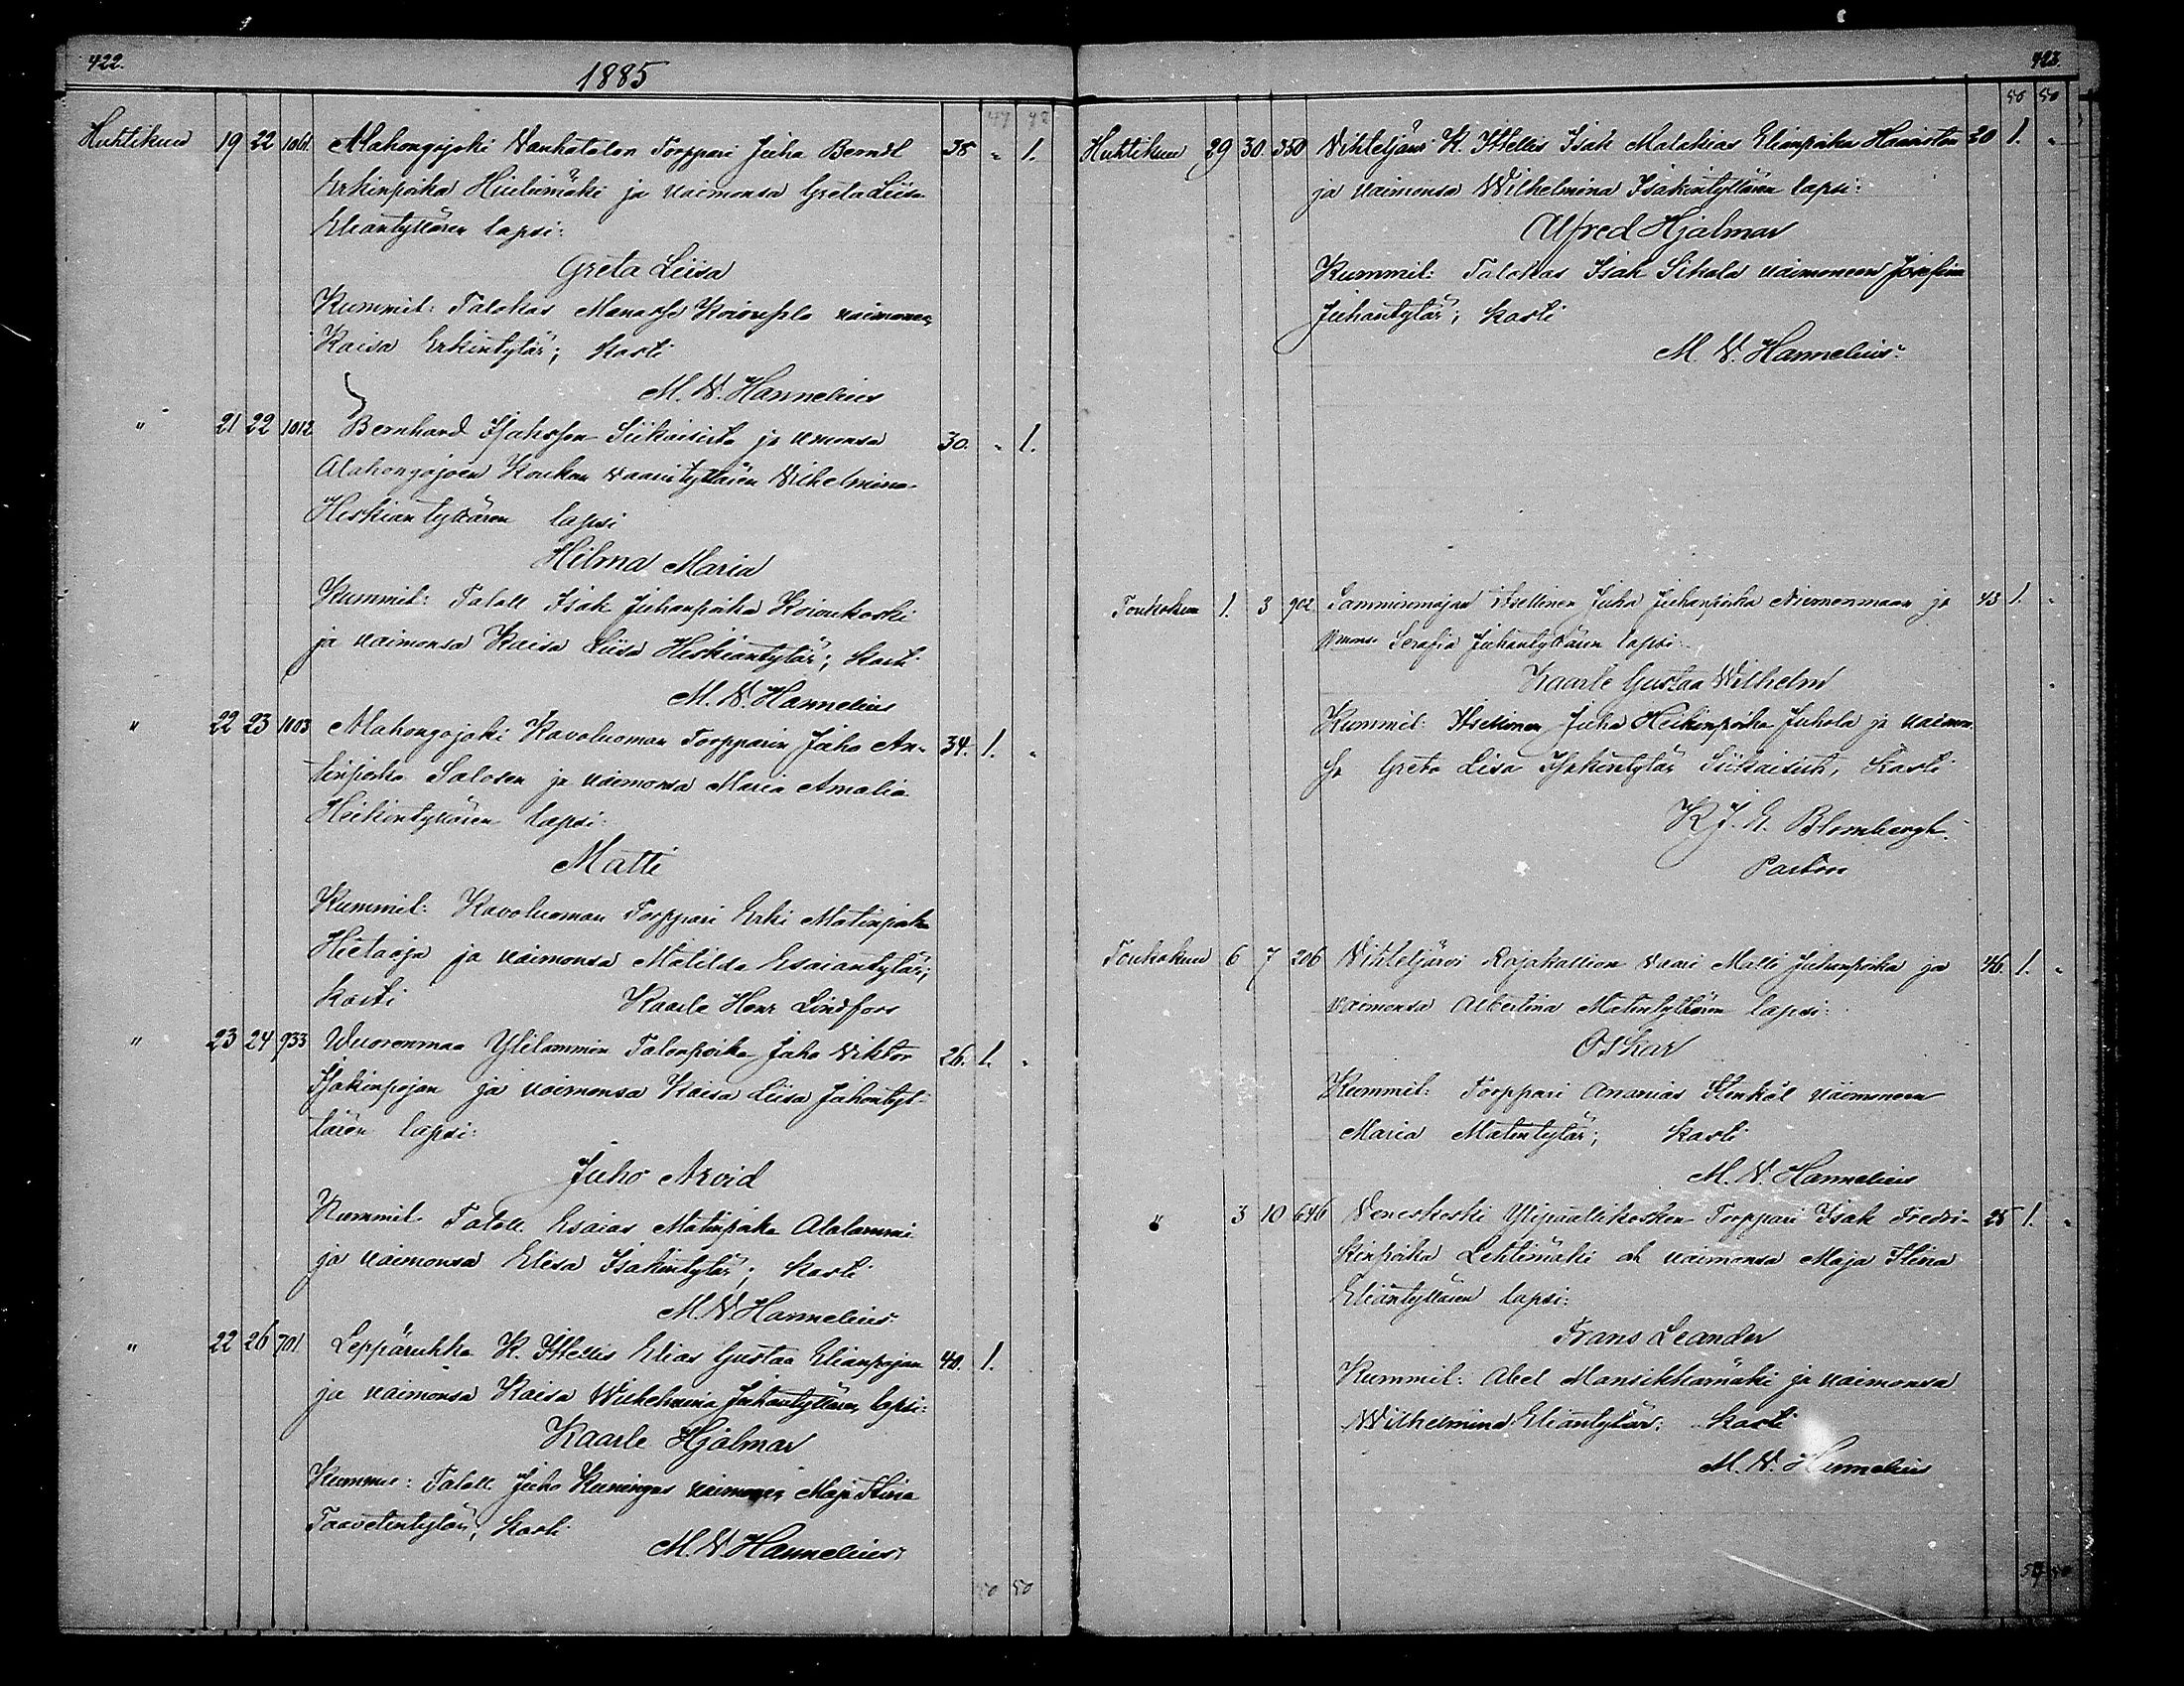 422.
1885
49 48
Huhtikuu 19 22 1061. Alahongojoki Wanhatalon Torppari Juha Berndt 35 " 1.
Erkinpoika ja vaimonsa Greta Liisa
Eliantyttären lapsi:
Greta Liisa
Kummit: Talokas Manasse vaimonen
Kaisa Erkintytär; kasti
M. W. Hannelius
" 21 22 1012 Bernhard Isaksson Siikaisista ja vmonsa 30. " 1.
Alahongojoen Koukan vaarityttären Wilhelmina
Heskiantyttären lapsi
Hilma Maria
Kummit: Taloll Isak Juhanpoika Koivukoski
ja vaimonsa Kaisa Liisa Heskiantytär; kasti
M. W. Hannelius
" 22 23 1103 Alahongojoki Kavoluoman Torpparin Juha An- 34. 1. "
tinpoika Salosen ja vaimonsa Maria Amalia
Heikintyttären lapsi:
Matti
Kummit: Kavoluoman Torppari Erki Matinpoika
Hietaoja ja vaimonsa Matilda Esaiantytär;
kasti Kaarle Henr Lindfors
" 23 24 933 Wuorenmaa Ylilammin Talonpoika Juha Viktor 26. 1. "
Isakinpojan ja vaimonsa Kaisa Liisa Juhantyt-
tären lapsi:
Juho Arvid
Kummit Taloll Esaias Matinpoika Alalammi
ja vaimonsa Elisa Isakintytär; kasti
M. W. Hannelius
" 22 26 701 Leppäruhka K. Itsellis Elias Gustaa Elianpojan 40. 1.
ja vaimonsa Kaisa Wilhelmina Juhantyttären lapsi:
Kaarle Hjalmar
Kummit: Taloll Juho Kuningas vaimonen Maja Stina
Taavetintytär; kasti
M. W. Hannelius
50 50
423.
50 50
Huhtikuu 29 30. 350 Vihteljärvi K. Itsellis Isak Malakias Elianpoika Haaviston 30 1. "
ja vaimonsa Wilhelmina Isakintyttären lapsi:
Alfred Hjalmar
Kummit: Talokas Isak Sikala vaimoneen Josefina
Juhantytär; kasti
M. W. Hannelius
Toukokuu 1. 3 902 Samminmajan itsellinen Juha Juhanpoika Niemenmaan ja 43 1. "
vmons Serafia Juhantyttären lapsi:
Kaarle Gustaa Wilhelm
Kummit: Itsellinen Juha Heikinpoika Juhola ja vaimon
sa Greta Lisa Isakintytär Siikaisista, kasti
K J. E. Blombergh.
Pastori
Toukokuu 6 7 206 Vihteljärvi Rajakallion vaari Matti Juhanpoika ja 46. 1. "
vaimonsa Albertina Matintyttären lapsi:
Oskar
Kummit: Torppari Ananias Stenkål vaimoneen
Maria Matintytär; kasti
M. W. Hannelius
" 3 10 646 Veneskoski Ylipaattikosken Torppari Isak Fredri- 25 1. "
kinpoika Lehtimäki ja vaimonsa Maja Stina
Eliantyttären lapsi:
Frans Leander
Kummit: Abel Mansikkamäki ja vaimonsa
Wilhelmina Eliantytär: kasti
M. W. Hannelius